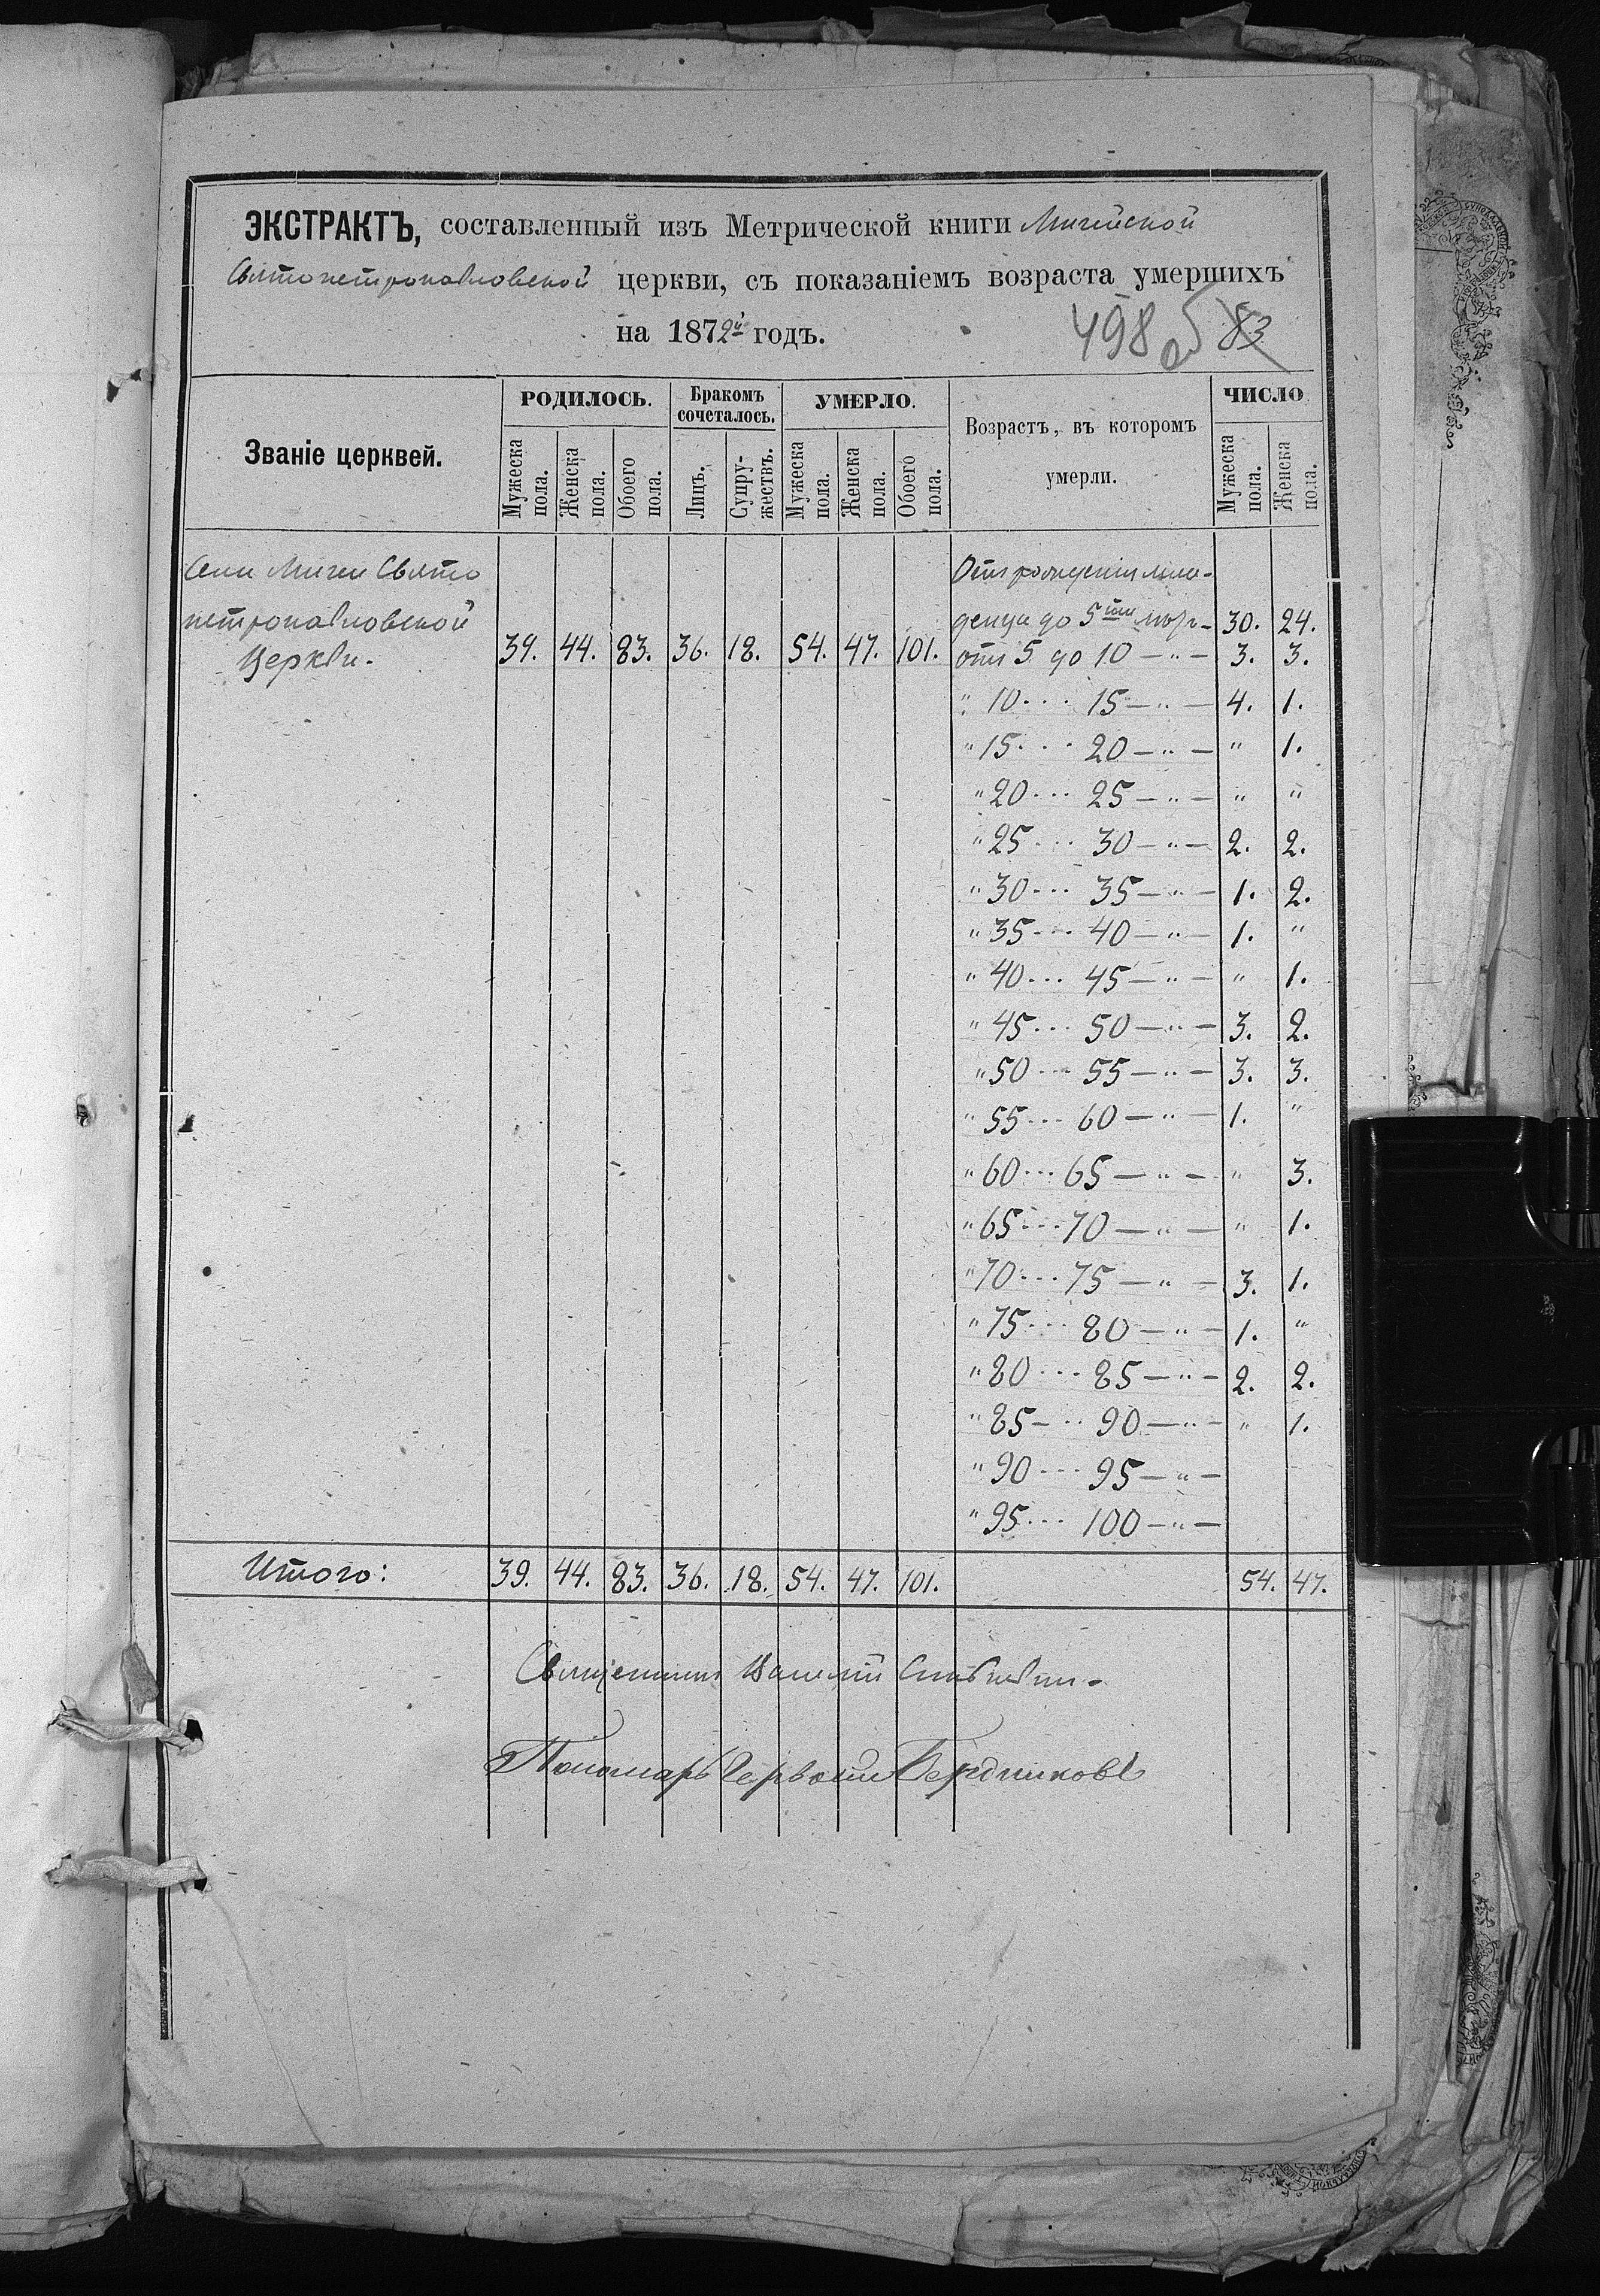 ЭКСТРАКТЪ, составленный изъ Метрической книги Мигійской
Святопетропавловской церкви, съ показаніемъ возраста умершихъ
на 1872й годъ.
498 об 83
Званіе церквей.
РОДИЛОСЬ.
Мужеска пола.
Женска пола.
Обоего пола.
Бракомъ сочеталось.
Лицъ.
Супружествъ.
УМЕРЛО.
Мужеска пола.
Женска пола.
Обоего пола.
Возрастъ, въ которомъ умерли.
ЧИСЛО
Мужеска пола.
Женска пола.
Села Мигеи Свято
петропавловской
Церкви. 39. 44. 83. 36. 18. 54. 47. 101.
Отъ рожденія мла-
денца до 5ти 30. 24.
отъ 5 до 10 — " — 3. 3.
" 10 ... 15 — " — 4. 1.
" 15 ... 20 — " — " 1.
" 20 ... 25 — " — " "
" 25 ... 30 — " — 2. 2.
" 30 ... 35 — " — 1. 2.
" 35 ... 40 — " — 1. "
" 40 ... 45 — " — " 1.
" 45 ... 50 — " — 3. 2.
" 50 ... 55 — " — 3. 3.
" 55 ... 60 — " — 1. "
" 60 ... 65 — " — " 3.
" 65 ... 70 — " — " 1.
" 70 ... 75 — " — 3. 1.
" 75 ... 80 — " — 1. "
" 80 ... 85 — " — 2. 2.
" 85 — .. 90 — " — " 1.
" 90 ... 95 — " —
" 95 ... 100 — " —
Итого: 39. 44. 83. 36. 18. 54. 47. 101. 54. 47.
Священникъ Василій
Пономарь Бердниковъ